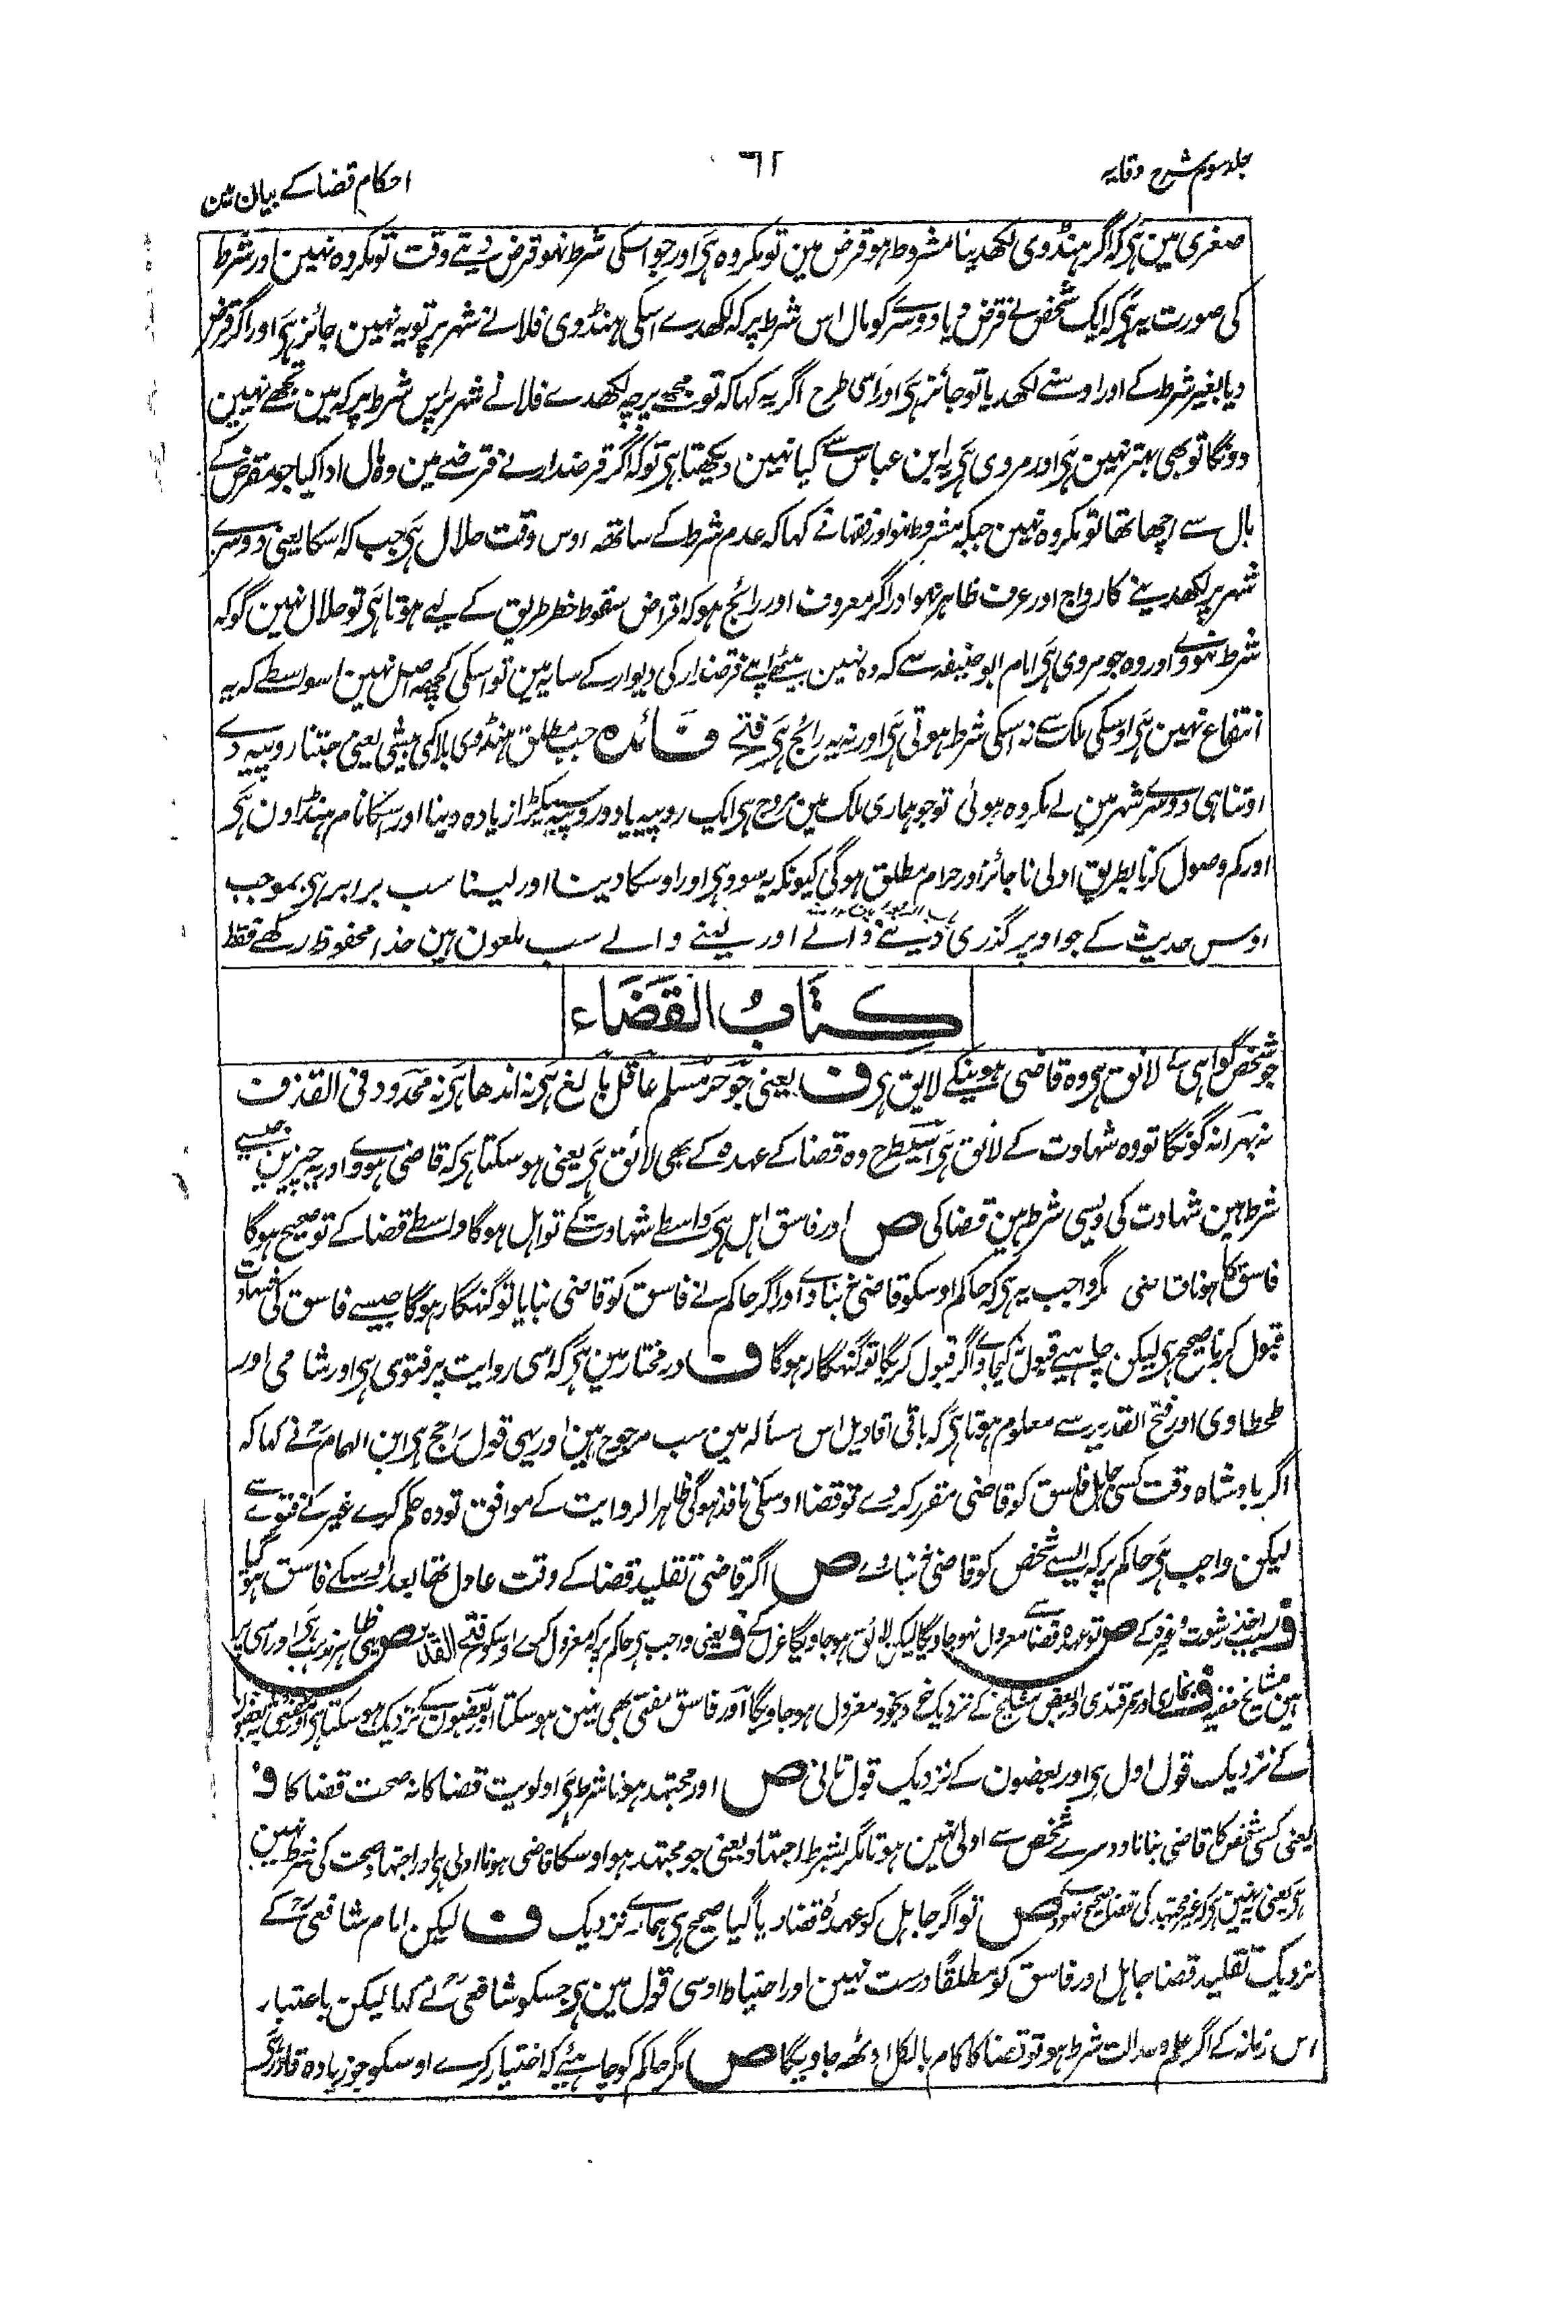 جلد سوم شرح وقایہ
٦٢
احکام قضا کے بیان مین
صغری مین ہی کہ اگر ہنڈوی لکھدینا مشروط ہو قرض مین تو مکروہ ہی اور جو اسکی شرط نہو قرض دیتے وقت تو مکروہ نہین اور شرط
کی صورت یہ ہی کہ ایک شخص نے قرض دیا دوسرے کو مال اس شرط پر کہ لکھدے اسکی ہنڈوی فلانے شہر پر تو یہ نہین جائز ہی اور اگر قرض
دیا بغیر شرط کے اور اوسنے لکھدیا تو جائز ہی اور اسی طرح اگر یہ کہا کہ تو مجھے پرچہ لکھدے فلانے شہر پر اس شرط پر کہ مین تجھے نہین
دونگا تو بھی بہتر نہین ہی اور مروی ہی یہ ابن عباس سے کیا نہین دیکھتا ہی تو کہ اگر قرضدار نے قرضے مین وہ مال ادا کیا جو مقرض کے
مال سے اچھا تھا تو مکروہ نہین جبکہ مشروط نہو اور فقہا نے کہا کہ عدم شرط کے ساتھہ اوس وقت حلال ہی جب کہ اسکا یعنی دوسرے
شہر پر لکھدینے کا رواج اور عرف ظاہر نہو اور اگر معروف اور رائج ہو کہ اقراض سقوط خطر طریق کے لیے ہوتا ہی تو حلال نہین گو کہ
شرط نہووے اور وہ جو مروی ہی امام ابو حنیفہ سے کہ وہ نہین بیٹھے اپنے قرضدار کی دیوار کے سایہ مین تو اسکی کچھہ اصل نہین اسواسطے کہ یہ
انتفاع نہین ہی اوسکی ملک سے نہ اسکی شرط ہوتی ہی اور نہ یہ رائج ہی فتح فائدہ جب مطلق ہنڈوی بلا کمی بیشی یعنی جتنا روپیہ دے
اوتنا ہی دوسرے شہر مین لے مکروہ ہوئی تو جو ہماری ملک مین مروج ہی ایک روپیہ یا دو روپیہ سیکڑا زیادہ دینا اور اسکا نام ہنڈاون ہی
اور کم وصول کرنا بطریق اولی ناجائز اور حرام مطلق ہوگی کیونکہ یہ سود ہی اور اوسکا دینا اور لینا سب برابر ہی بموجب
اوس حدیث کے جو اوپر گذری دینے والے اور لینے والے سب ملعون ہین خدا محفوظ رکھے فقط
كتاب القضاء
جو شخص گواہی کے لائق ہی وہ قاضی ہونیکے لایق ہی ف یعنی جو حر مسلم عاقل بالغ ہی نہ اندھا ہی نہ محدود فی القذف
نہ بہرا نہ گونگا تو وہ شہادت کے لائق ہی اسیطرح وہ قضا کے عہدہ کے بھی لائق ہی یعنی ہو سکتا ہی کہ قاضی ہووے اور یہ چیزین جیسے
شرط ہین شہادت کی ویسی شرط ہین قضا کی ص اور فاسق اہل ہی واسطے شہادت کے تو اہل ہوگا واسطے قضا کے تو صحیح ہوگا
فاسق کا ہونا قاضی مگر واجب یہ ہی کہ حاکم اوسکو قاضی نہ بناوے اور اگر حاکم نے فاسق کو قاضی بنایا تو گنہگار ہوگا جیسے فاسق کی شہادت
قبول کرنا صحیح ہی لیکن چاہیے قبول نہ کیجاوے اگر قبول کریگا تو گنہگار ہوگا ف در مختار مین ہی کہ اسی روایت پر فتوی ہی اور شامی اور
طحطاوی اور فتح القدیر سے معلوم ہوتا ہی کہ باقی اقاویل اس مسالہ مین سب مرجوح ہین اور یہی قول راجح ہی ابن الہمام نے کہا کہ
اگر بادشاہ وقت کسی جاہل فاسق کو قاضی مقرر کردے تو قضا اوسکی نافذ ہوگی ظاہر الروایت کے موافق تو وہ حکم کرے غیر کے فتوے سے
لیکن واجب ہی حاکم پر کہ ایسے شخص کو قاضی نہ بناوے ص اگر قاضی تقلید قضا کے وقت عادل تھا بعد اوسکے فاسق ہو گیا
ف بسبب اخذ رشوت وغیرہ کے ص تو عہدہ قضا سے معزول نہو جاویگا لیکن لائق ہو جاویگا عزل کے ف یعنی واجب ہی حاکم پر کہ معزول کرے اوسکو فتح القدیر ص یہی ظاہر مذہب ہی اور اسی پر
ہین مشایخ حنفیہ ف بخاری اور سمرقندی اور بعض مشایخ کے نزدیک خود بخود معزول ہو جاویگا اور فاسق مفتی بھی نہین ہو سکتا اور بعضون کے نزدیک ہو سکتا ہی
کے نزدیک قول اول ہی اور بعضون کے نزدیک قول ثانی ص اور مجتہد ہونا شرط ہی اولویت قضا کا نہ صحت قضا کا ف
یعنی کسی شخص کا قاضی بنانا دوسرے شخص سے اولی نہین ہوتا مگر بشرط اجتہاد یعنی جو مجتہد ہو اوسکا قاضی ہونا اولی ہی اور اجتہاد صحت کی شرط نہین
ہی یعنی یہ نہین ہی کہ غیر مجتہد کی قضا صحیح نہووے ص تو اگر جاہل کو عہدہ قضا دیا گیا صحیح ہی ہمارے نزدیک ف لیکن امام شافعی کے
نزدیک تقلید قضا جاہل اور فاسق کو مطلقاً درست نہین اور احتیاط اوسی قول مین ہی جسکو شافعی نے کہا لیکن باعتبار
اس زمانہ کے اگر علم و عدالت شرط ہو تو قضا کا کام بالکل اوٹھہ جاویگا ص مگر حاکم کو چاہیئے کہ اختیار کرے اوسکو جو زیادہ قادر ہی